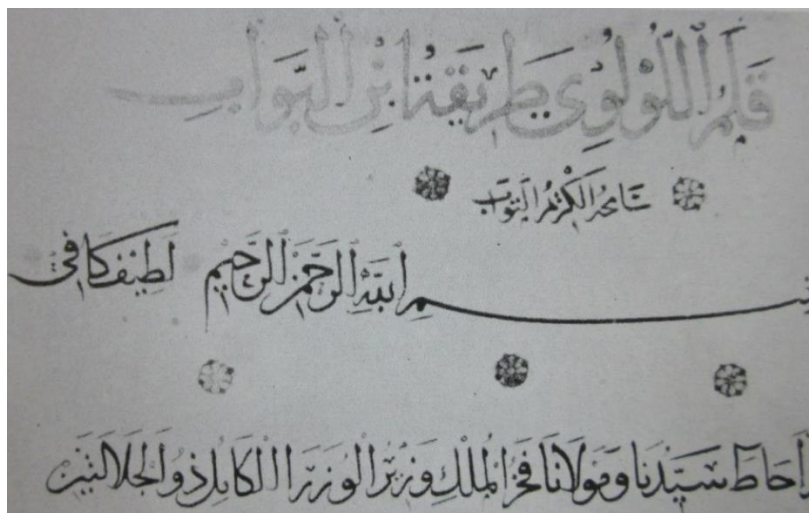 قلم اللؤلؤي طريقة ابن البواب
سامحه الكريم التواب
بسم الله الرحمن الرحيم لطيف كافي
أحاط سيدنا ومولانا فخر الملك وزير الوزراء الكامل ذو الجلالتين